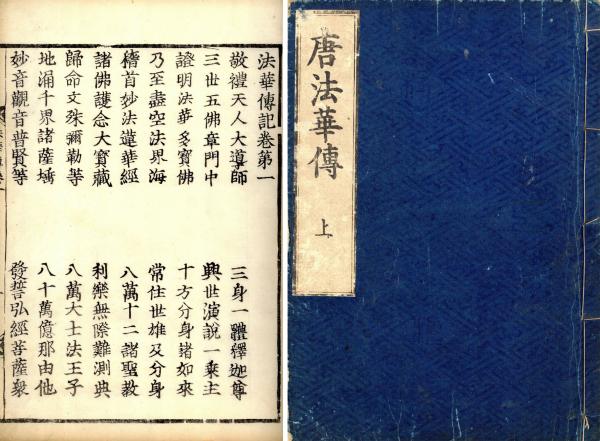 唐法華傳
上
法華傳記卷第一
敬禮天人大導師　三身一體釋迦尊
三世五佛章門中　興世演說一乘主
證明法華多寶佛　十方分身諸如來
乃至盡空法界海　常住世雄及分身
稽首妙法蓮華經　八萬十二諸聖教
諸佛護念大寶藏　利樂無際難測典
歸命文殊彌勒等　八萬大士法王子
地涌千界諸薩埵　八十萬億那由他
妙音觀音普賢等　發誓弘經菩薩衆